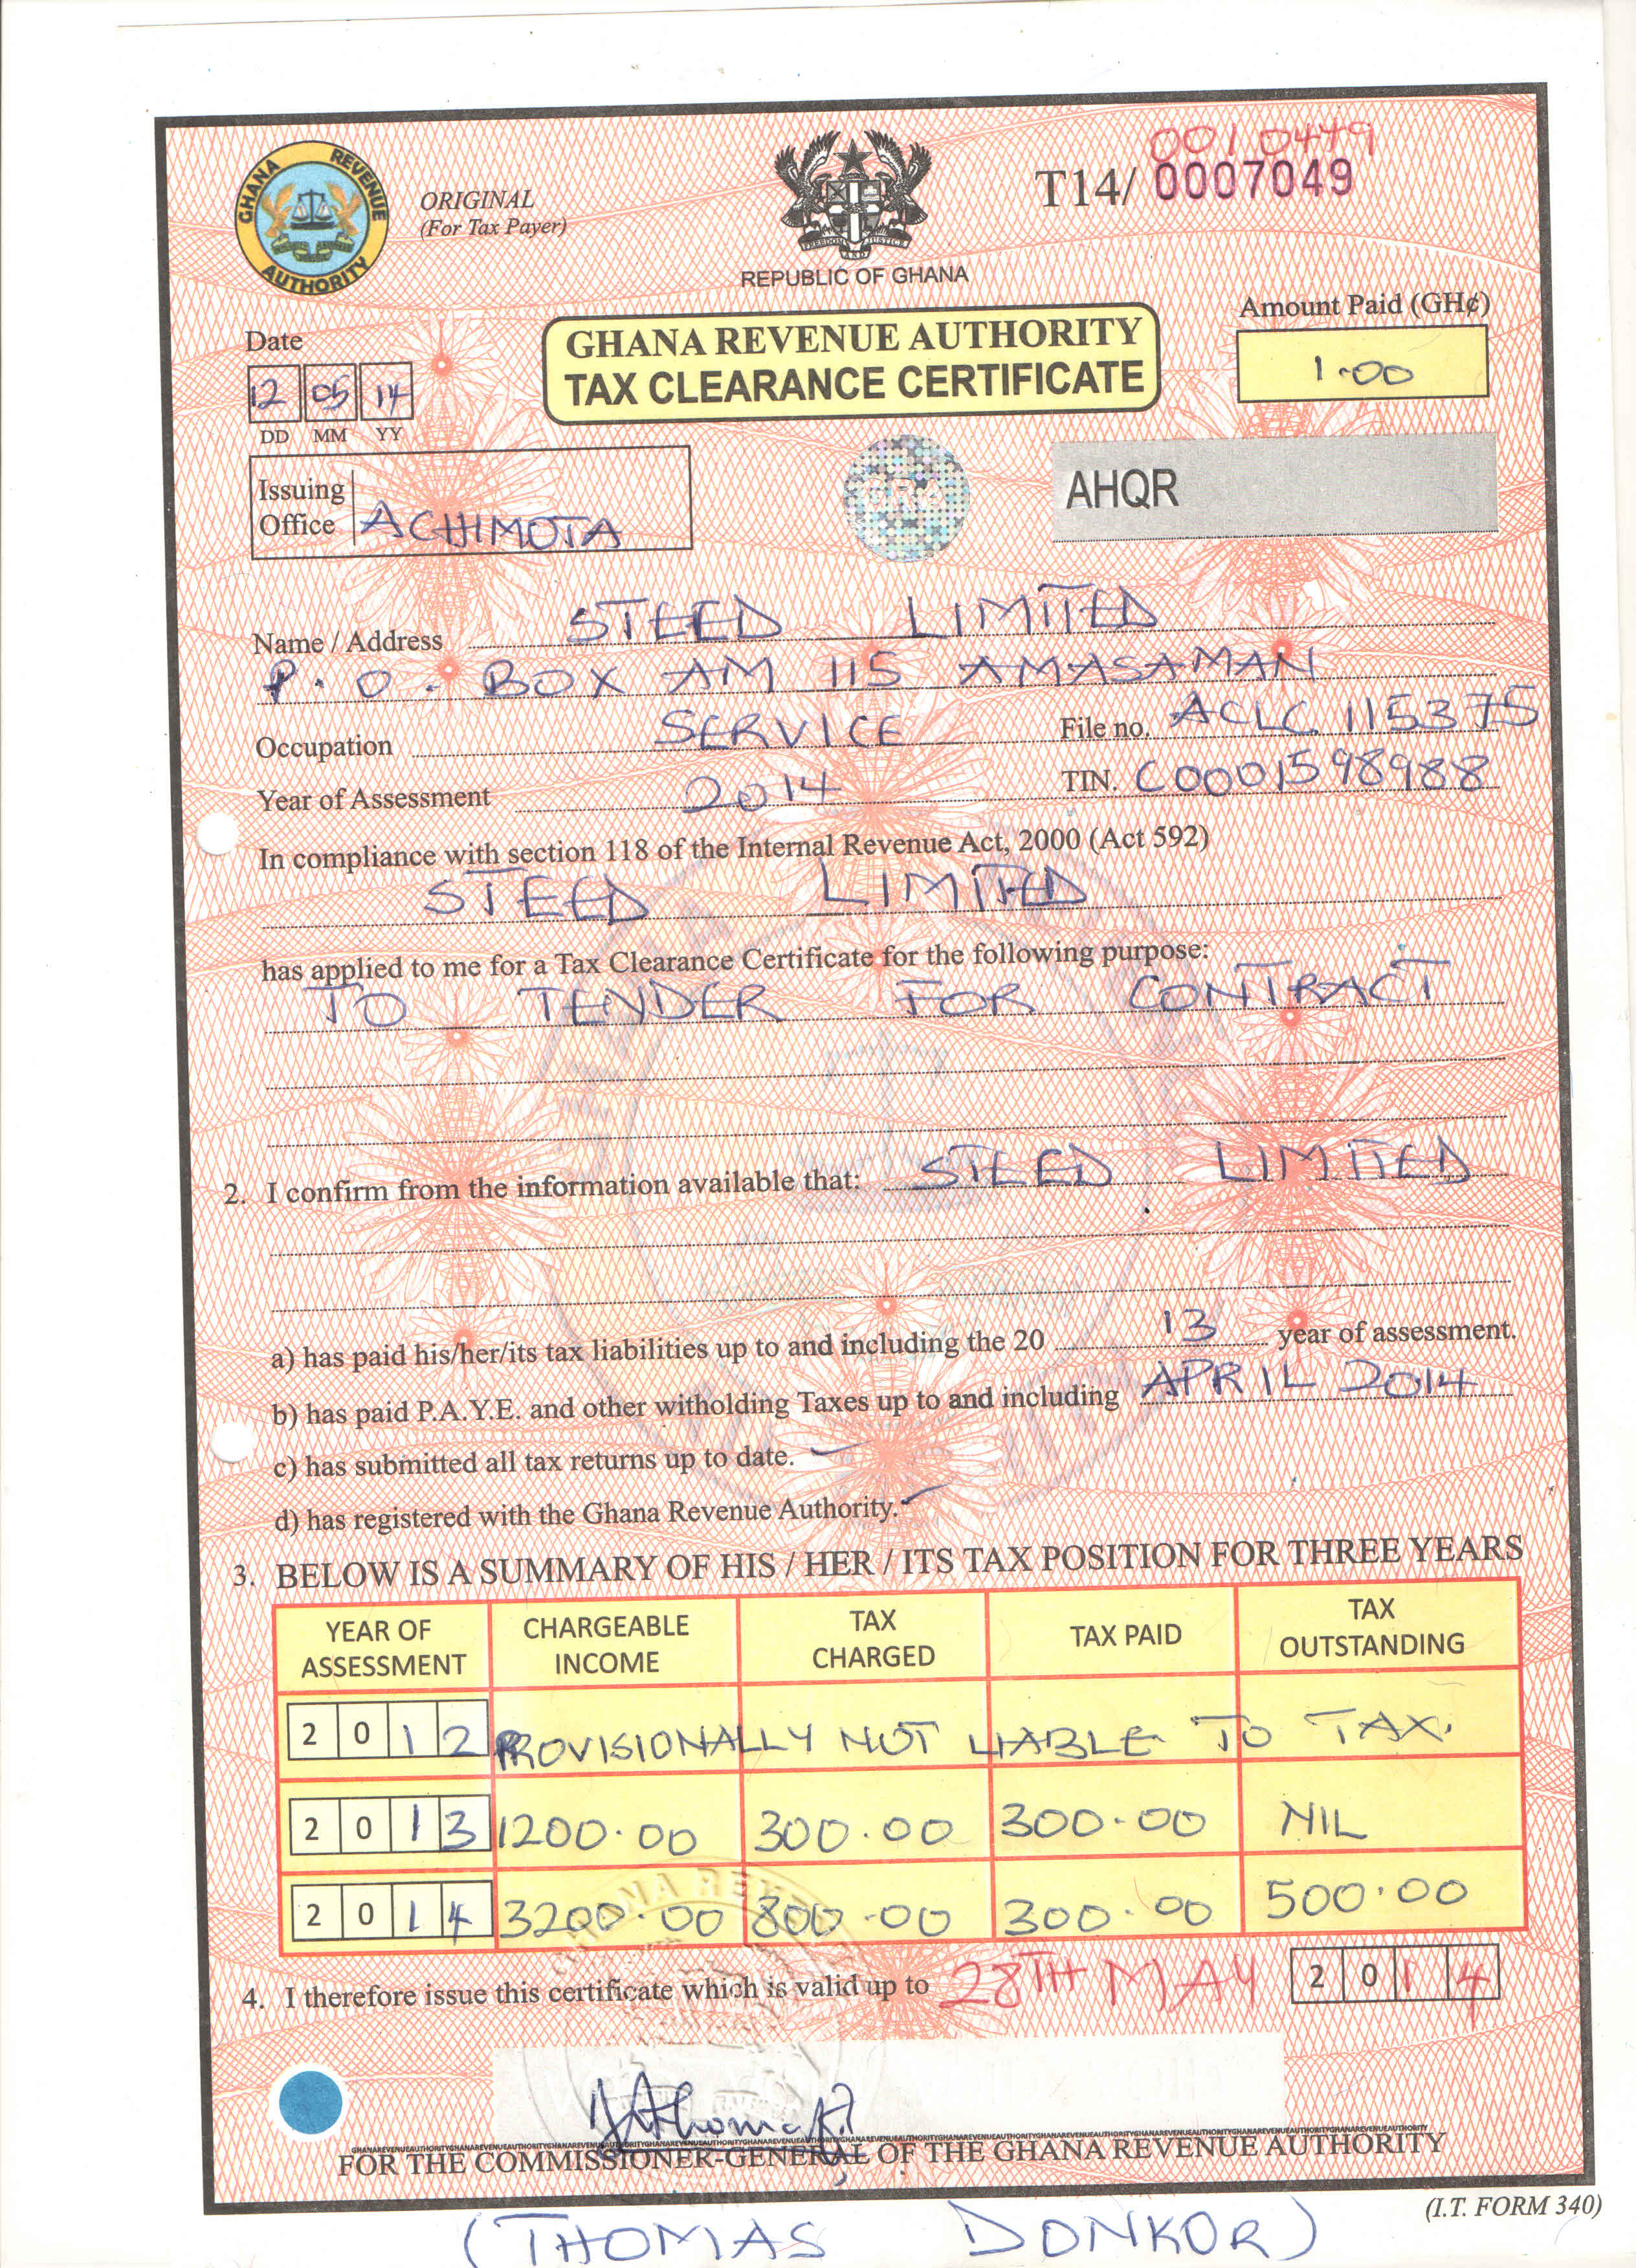 GHANA REVENUE AUTHORITY
ORIGINAL
(For Tax Payer)
FREEDOM AND JUSTICE
REPUBLIC OF GHANA
0010479
T14/ 0007049
Date
12 05 14
DD MM YY
GHANA REVENUE AUTHORITY
TAX CLEARANCE CERTIFICATE
Amount Paid (GH¢)
1.00
Issuing Office ACHIMOTA
GRA
AHQR
Name / Address STEED LIMITED
P.O. BOX AM 115 AMASAMAN
Occupation SERVICE File no. ACLC 115375
Year of Assessment 2014 TIN. C0001598988
In compliance with section 118 of the Internal Revenue Act, 2000 (Act 592)
STEED LIMITED
has applied to me for a Tax Clearance Certificate for the following purpose:
TO TENDER FOR CONTRACT
2. I confirm from the information available that: STEED LIMITED
a) has paid his/her/its tax liabilities up to and including the 20 13 year of assessment.
b) has paid P.A.Y.E. and other witholding Taxes up to and including APRIL 2014
c) has submitted all tax returns up to date.
d) has registered with the Ghana Revenue Authority.
3. BELOW IS A SUMMARY OF HIS / HER / ITS TAX POSITION FOR THREE YEARS
YEAR OF ASSESSMENT CHARGEABLE INCOME TAX CHARGED TAX PAID TAX OUTSTANDING
2012 PROVISIONALLY NOT LIABLE TO TAX.
2013 1200.00 300.00 300.00 NIL
2014 3200.00 800.00 300.00 500.00
4. I therefore issue this certificate which is valid up to 28TH MAY 2014
FOR THE COMMISSIONER-GENERAL OF THE GHANA REVENUE AUTHORITY
(I.T. FORM 340)
(THOMAS DONKOR)